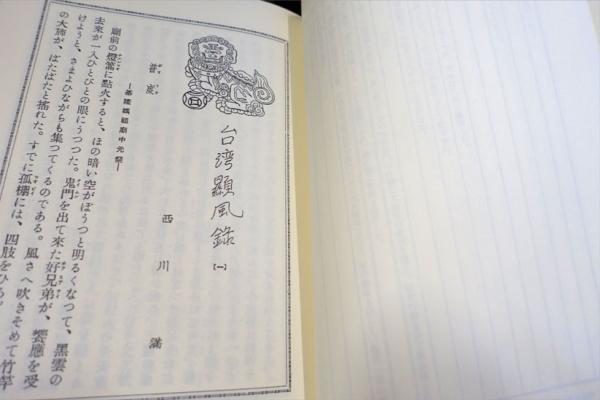 台湾顯風錄
【一】
西川滿
普度
―基隆媽祖廟中元祭―
廟前の燈篙に點火すると、ほの暗い空がぼうつと明るくなつて、黒雲の
去來が一人ひとびとの眼にうつつた。鬼門を出て來た好兄弟が、饗應を受
けようと、さまよひながらも集つてくるのである。風さへ吹きそめて竹竿
の大旆が、ばたばたと搖れた。すでに孤棚には、四肢をひろ